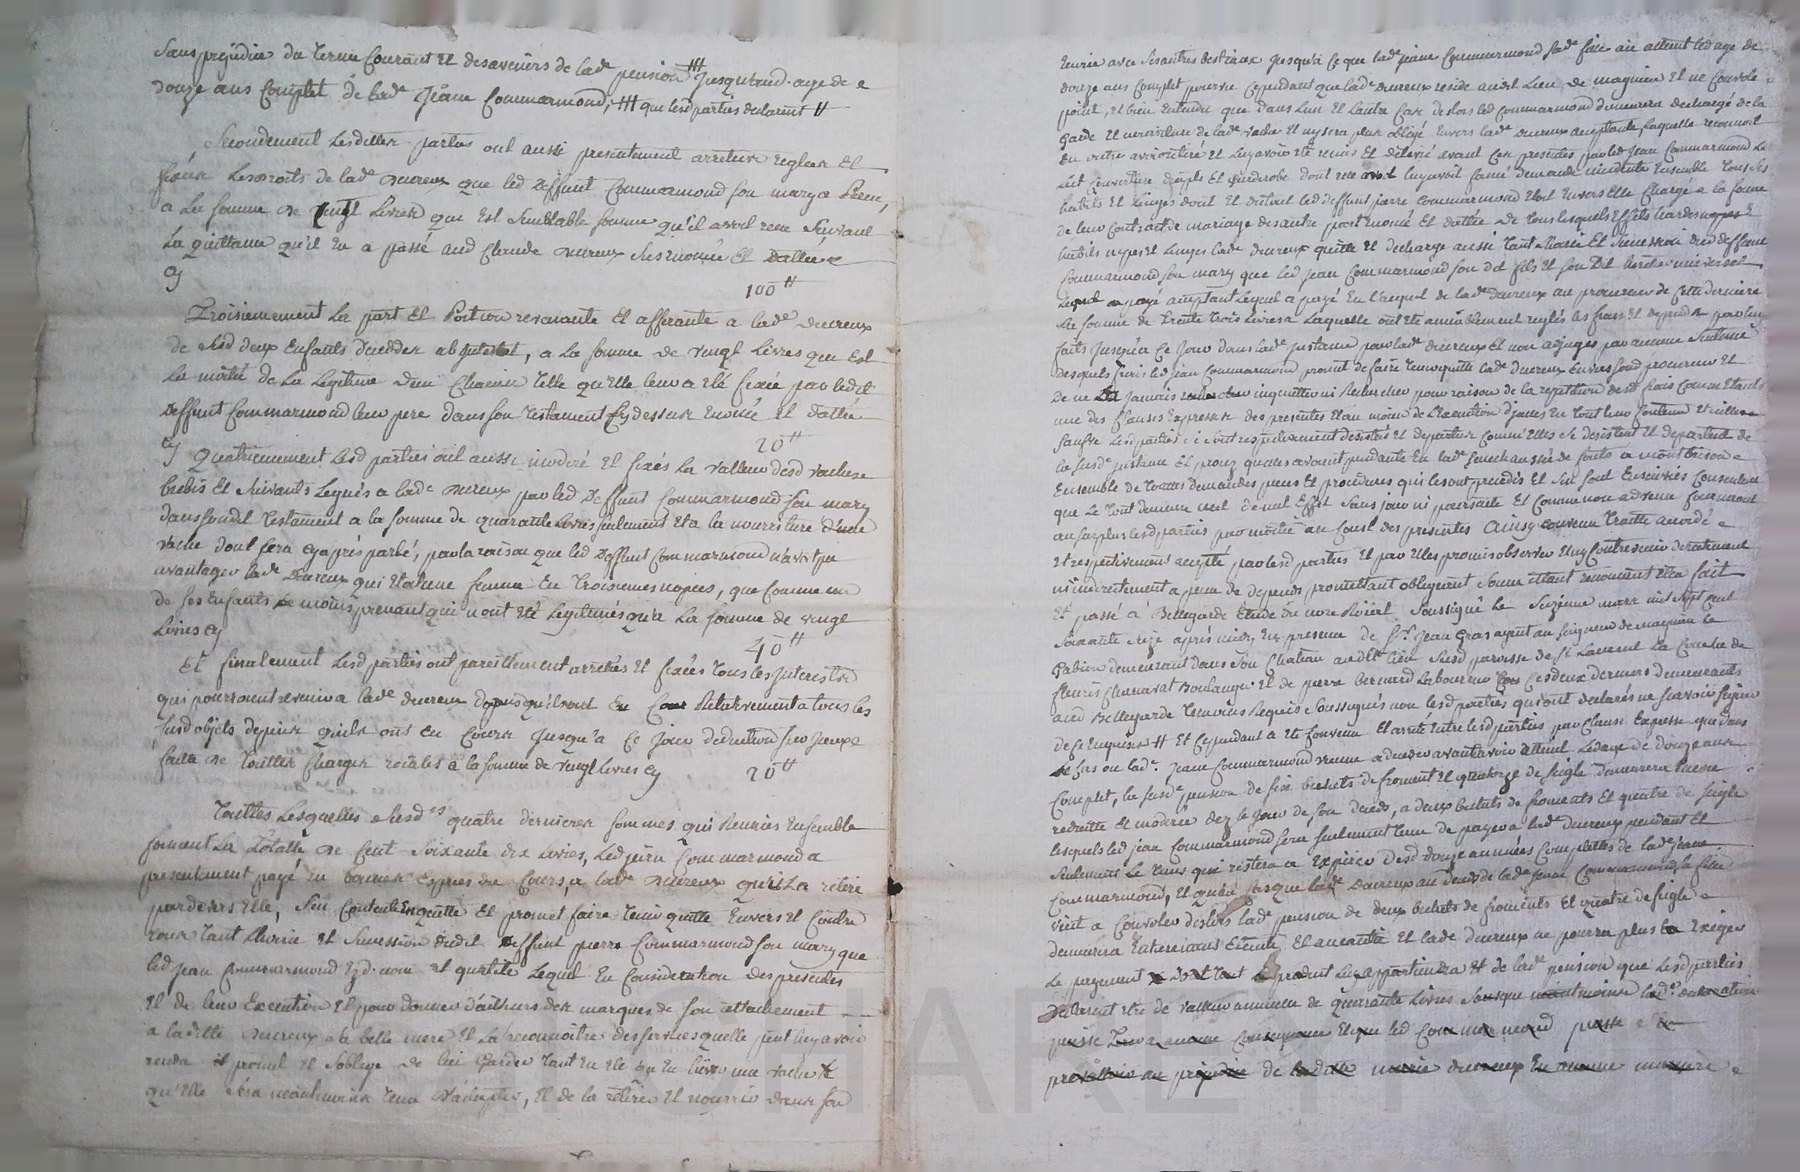 Sans prejudice du terme Courant et desavenirs de lad.e pension ††† jusqu'aud. age de
douze ans Complet de lad.e Jeane Commarmond, ††† que lesd parties declarent #
Secondement Lesdittes parties ont aussi presentement arretter regler et
fixér Les droits de lad.e Ducreux que led deffunt Commarmond son mary a
a La somme de Cent Livres que est semblable somme qu'il avoit receu suivant
La quittance qu'il en a passé aud Claude Ducreux susnomée et dattée
cy
100#
Troisiemement La part et Portion revenante et afferante a lad.e Ducreux
de sesd deux Enfants decedés abintestat, a La somme de vingt Livres que est
La moitié de La Legitime d'un Chacun telle qu'elle leur a eté fixée par ledit
deffunt Commarmond leur pere dans son testament cy dessus énoncé et datté
cy
20#
Quatriemement lesd parties ont aussi moderé et fixés La valleur desd vaches
brebis et suivants Legués a lad.e Ducreux par led deffunt Commarmond son mary
dans sondit testament a la somme de quarante Livres seulement et a la nourriture d'une
vache dont sera cy après parlé, par la raison que led deffunt Commarmond n'avoit pu
avantager lad.e Ducreux qui etoit une femme en troisiemes nopces, que comme un
de ses enfants le moins prenant qui n'ont eté Legitimés qu'a La somme de vingt
Livres cy
40#
Et finalement lesd parties ont pareillement arretés et fixés tous les interets
qui pourroient revenir a lad.e Ducreux depuis qu'ils ont eu Cour Relativement a tous les
susd objets depuis qu'ils ont eu Cours jusqu'a ce jour deduction sur iceux
faite de touttes Charges roiales a la somme de vingt Livres cy
20#
Touttes Lesquelles susd.es quatre dernieres sommes qui Reunies Ensemble
forment La Totalle de Cent Soixante dix Livres, Led jean Commarmond a
presentement payé en especes du Cours, a lad.e Ducreux qui La retiré
pardevers elle, s'en Contente En quitte et promet faire tenir quitte Envers et Contre
tous tant Hoirie et Succession dudit deffunt pierre Commarmond son mary que
led jean Commarmond Esd. nom et qualité Lequel En Consideration des presentes
et de leur Execution et pour donner d'ailleurs des marques de son attachement
a laditte Ducreux sa belle mere et La reconnoitre des services quelle peut luy avoir
rendu il promet et s'oblige de lui garder tant en eté qu'en hiver une vache
qu'elle sera neantmoins tenu d'achepter, et de la retirer et nourrir dans son
Ecurie avec ses autres bestiaux jusqu'a Ce que lad.e jeane Commarmond sad.e fille aie atteint led age de
douze ans Complet pourvu Cependant que lad.e Ducreux reside aud. Lieu de magnieu et ne Convole
point, et bien entendu que dans l'un et l'autre Cas deslors led Commarmond demeurera dechargé de la
garde et nourriture de lad.e vache et n'y sera plus obligé Envers lad.e Ducreux acceptante, Laquelle reconnoit
En outre avoir retiré et luy avoir eté remis et delivré avant Ces presentes par led Jean Commarmond Le
Lit Couverture draps et garderobe dont elle luy avoit formé demande incidente Ensemble tous ses
habits et Linges dont et du tout led deffunt pierre Commarmond etoit Envers elle Chargé a la forme
de leur Contract de mariage des autre part enoncé et datté de tous lesquels Effets hardes nippes
habits nipes et Linges lad.e Ducreux quitte et decharge aussi tant L'hoirie et Succession dud deffunt
Commarmond son mary que led jean Commarmond son dit fils et son dit heritier universel
Lequel a payé acceptant Lequel a payé En l'acquit de lad.e Ducreux au procureur de Cette derniere
La somme de Trente trois Livres a Laquelle ont eté amiablement reglés les frais et depends par luy
faits jusqu'a Ce jour dans lad.e justance par lad.e Ducreux et non adjugés par aucune Sentence
desquels frais led jean Commarmond promet de faire tenir quitte lad.e Ducreux Envers sond procureur et
de ne La jamais inquietter ni Rechercher pour raison de la repetition desd frais Comme etant
une des Clauses Expresses des presentes et au moien de l'execution d'jcelles en tout leur Contenu
Lesd parties se sont respectivement desistés et departies comm'elles se desistent et departent de
la susd.e justance et procés quelles avoient pendante En lad.e Senechaussée de forets a montbrison
Ensemble de Touttes demandes peines et procedures qui les ont precedés et s'en sont Ensuivies Consentent
que Le tout demeure nul de nul Effet sans jour ni poursuitte et Comme non advenu fournissant
au surplus lesd parties par moitié au Coust des presentes Ainsy Convenu Traitté accordé
et respectivement accepté par lesd parties et par elles promis observer et n'y Contrevenir directement
ni indirectement a peine de depends promettant obligeant Soumettant renonceant et a fait
et passé a Bellegarde Etude du nore Roiial soussigné Le Suzieme mars mil Sept cent
Soixante seize après midy En presence de S.r Jean Gras agent au Seigneur de magnieu Le
Gabion demeurant dans son Chateau audit lieu susd paroisse de S.t Laurent La Conche de
fleury Chenavat Boulanger et de pierre Bernard Laboureur Ces deux derniers demeurants
aud Bellegarde temoins Requis Soussignés non lesd parties qui ont declarés ne sçavoir signer
de Ce Enquises # Et Cependant a eté Convenu et arreté Entre lesd parties par Clause Expresse que dans
le Cas ou lad.e Jeane Commarmond vienne a deceder avant avoir atteint led age de Douze ans
Complet, la susd.e pension de six bichets de froment et quatorze de seigle demeurera
reduitte et moderée dez le jour de son decés, a deux bichets de froments et quatre de seigle
lesquels led jean Commarmond sera seulement tenu de payer a lad.e Ducreux pendant et
seulement Le tems qui restera a Expirer desd douze années Complettes de lad.e jeane
Commarmond, et qu'au Cas que lad.e Ducreux au deces de lad.e jeane Commarmond sa fille
vint a Convoler deslors lad.e pension de deux bichets de froments et quatre de seigle
demeurera Entierement Eteinte et aneantie et lad.e Ducreux ne pourra plus Exiger
Le payement # de lad.e pension que lesd parties
declarent etre de valleur annuelle de quarante Livres